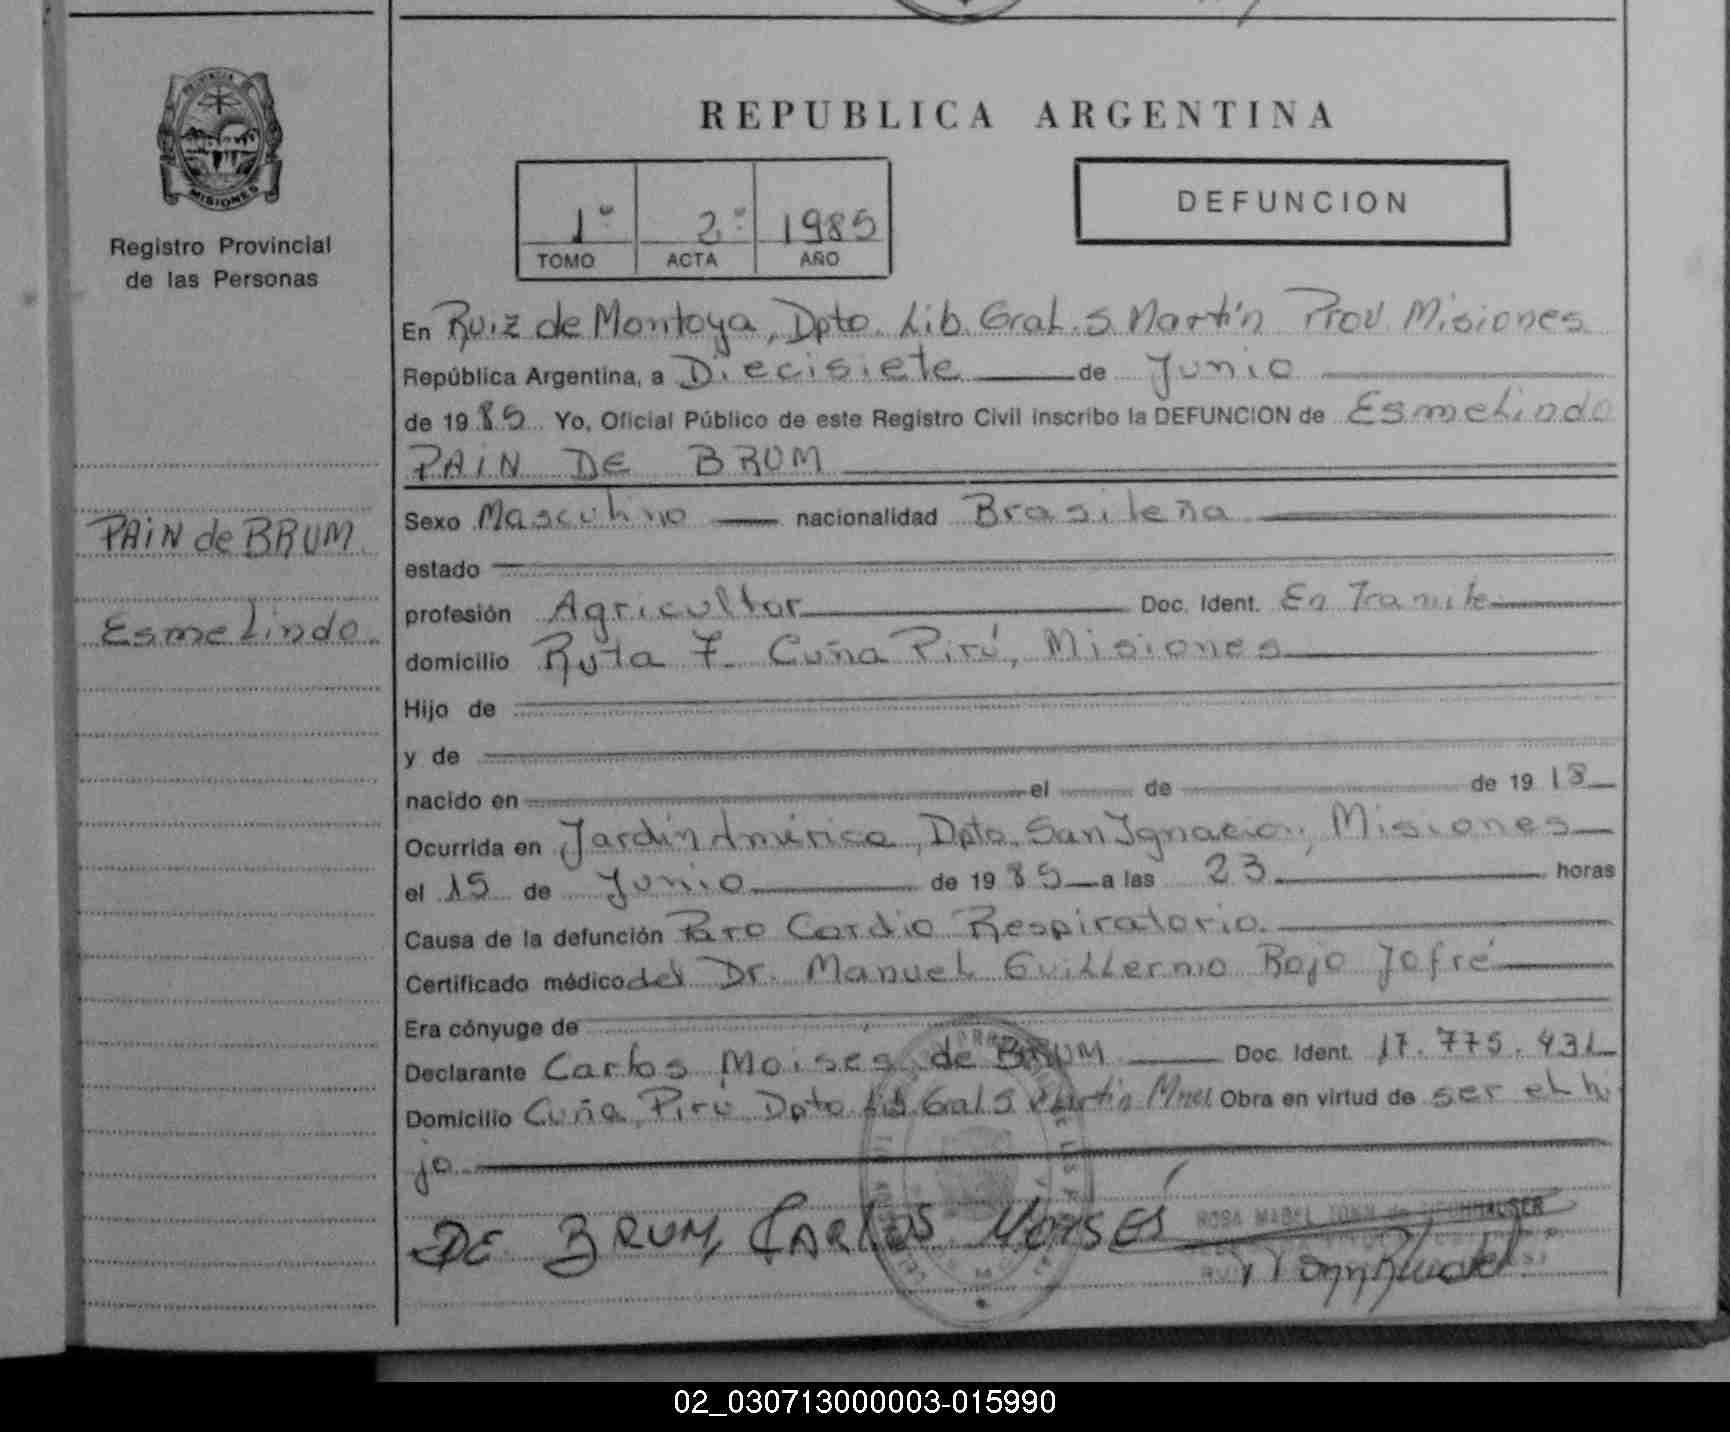 PROVINCIA
MISIONES
Registro Provincial
de las Personas
PAIN de BRUM
Esmelindo
REPUBLICA ARGENTINA
1º 2º 1985
TOMO ACTA AÑO
DEFUNCION
En Ruiz de Montoya, Dpto. Lib. Gral. S. Martín Prov. Misiones
República Argentina, a Diecisiete de Junio
de 1985 Yo, Oficial Público de este Registro Civil inscribo la DEFUNCION de Esmelindo
PAIN DE BRUM
Sexo Masculino nacionalidad Brasileña
estado
profesión Agricultor Doc. Ident. En Tramite
domicilio Ruta 7 Cuña Pirú, Misiones
Hijo de
y de
nacido en el de de 1918
Ocurrida en Jardín América, Dpto. San Ignacio, Misiones
el 15 de Junio de 1985 a las 23 horas
Causa de la defunción Paro Cardio Respiratorio.
Certificado médico del Dr. Manuel Guillermo Rojo Jofré
Era cónyuge de
Declarante Carlos Moises de BRUM Doc. Ident. 17.775.431
Domicilio Cuña Pirú Dpto Lib Gral S Martín Mnes Obra en virtud de ser el hi
jo
DE BRUM, CARLOS MOISÉS
ROSA MABEL
02_030713000003-015990